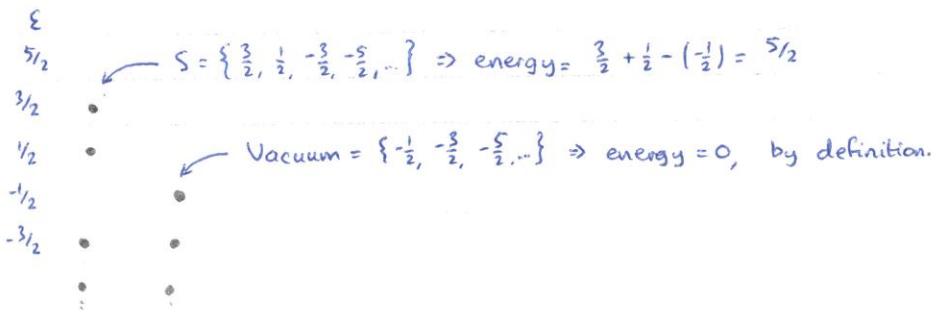 ε
5/2
S = { 3/2, 1/2, -3/2, -5/2, ... } ⇒ energy = 3/2 + 1/2 - (-1/2) = 5/2
3/2
1/2
Vacuum = { -1/2, -3/2, -5/2, ... } ⇒ energy = 0, by definition.
-1/2
-3/2